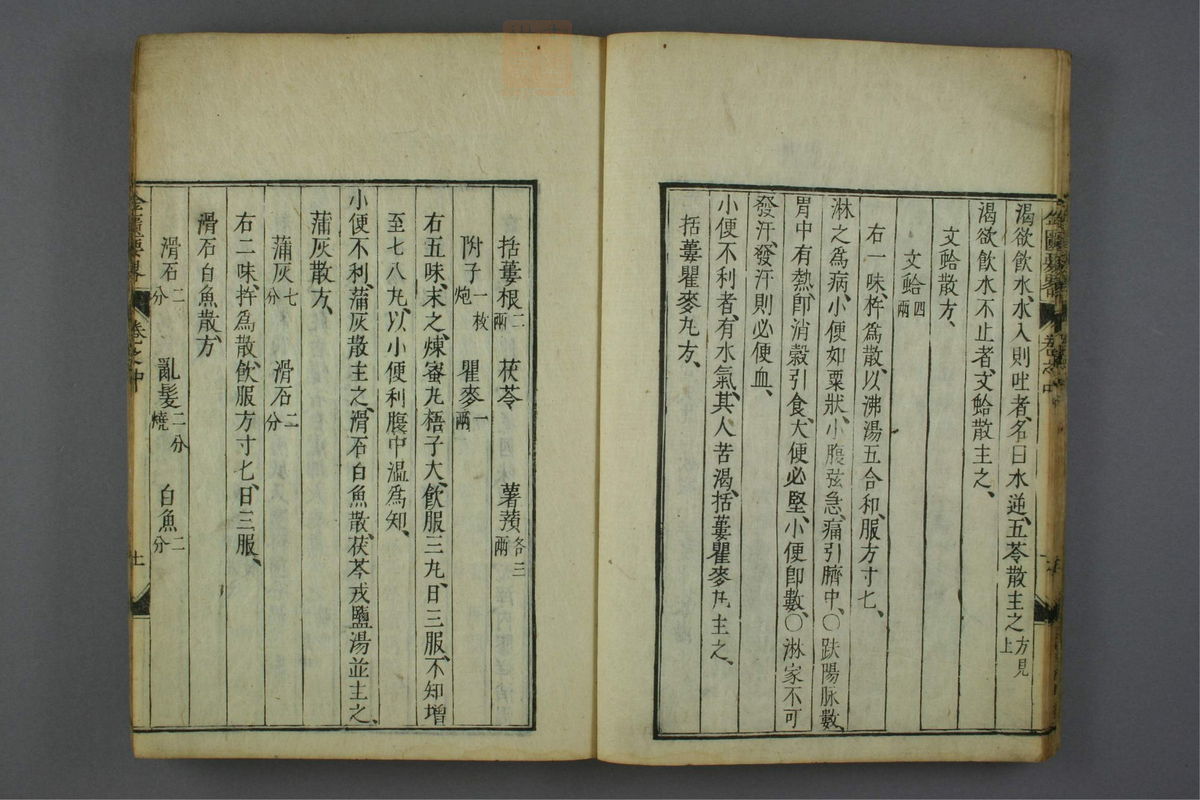 渴欲飲水、水入則吐者、名曰水逆、五苓散主之、方見上
渴欲飲水不止者、文蛤散主之、
文蛤散方、
文蛤四兩
右一味、杵爲散、以沸湯五合、和服方寸匕、
淋之爲病、小便如粟狀、小腹弦急、痛引臍中、〇趺陽脉數、
胃中有熱、卽消穀引食、大便必堅、小便卽數、〇淋家不可
發汗、發汗則必便血、
小便不利者、有水氣、其人苦渴、括蔞瞿麥丸主之、
括蔞瞿麥丸方、
括蔞根二兩 茯苓 薯蕷各三兩
附子一枚炮 瞿麥一兩
右五味、末之、煉蜜丸梧子大、飲服三丸、日三服、不知增
至七八丸、以小便利腹中溫爲知、
小便不利、蒲灰散主之、滑石白魚散、茯苓戎鹽湯並主之、
蒲灰散方、
蒲灰七分 滑石二分
右二味、杵爲散、飲服方寸匕、日三服、
滑石白魚散方
滑石二分 亂髮二分燒 白魚二分
金匱要略 卷之中 十